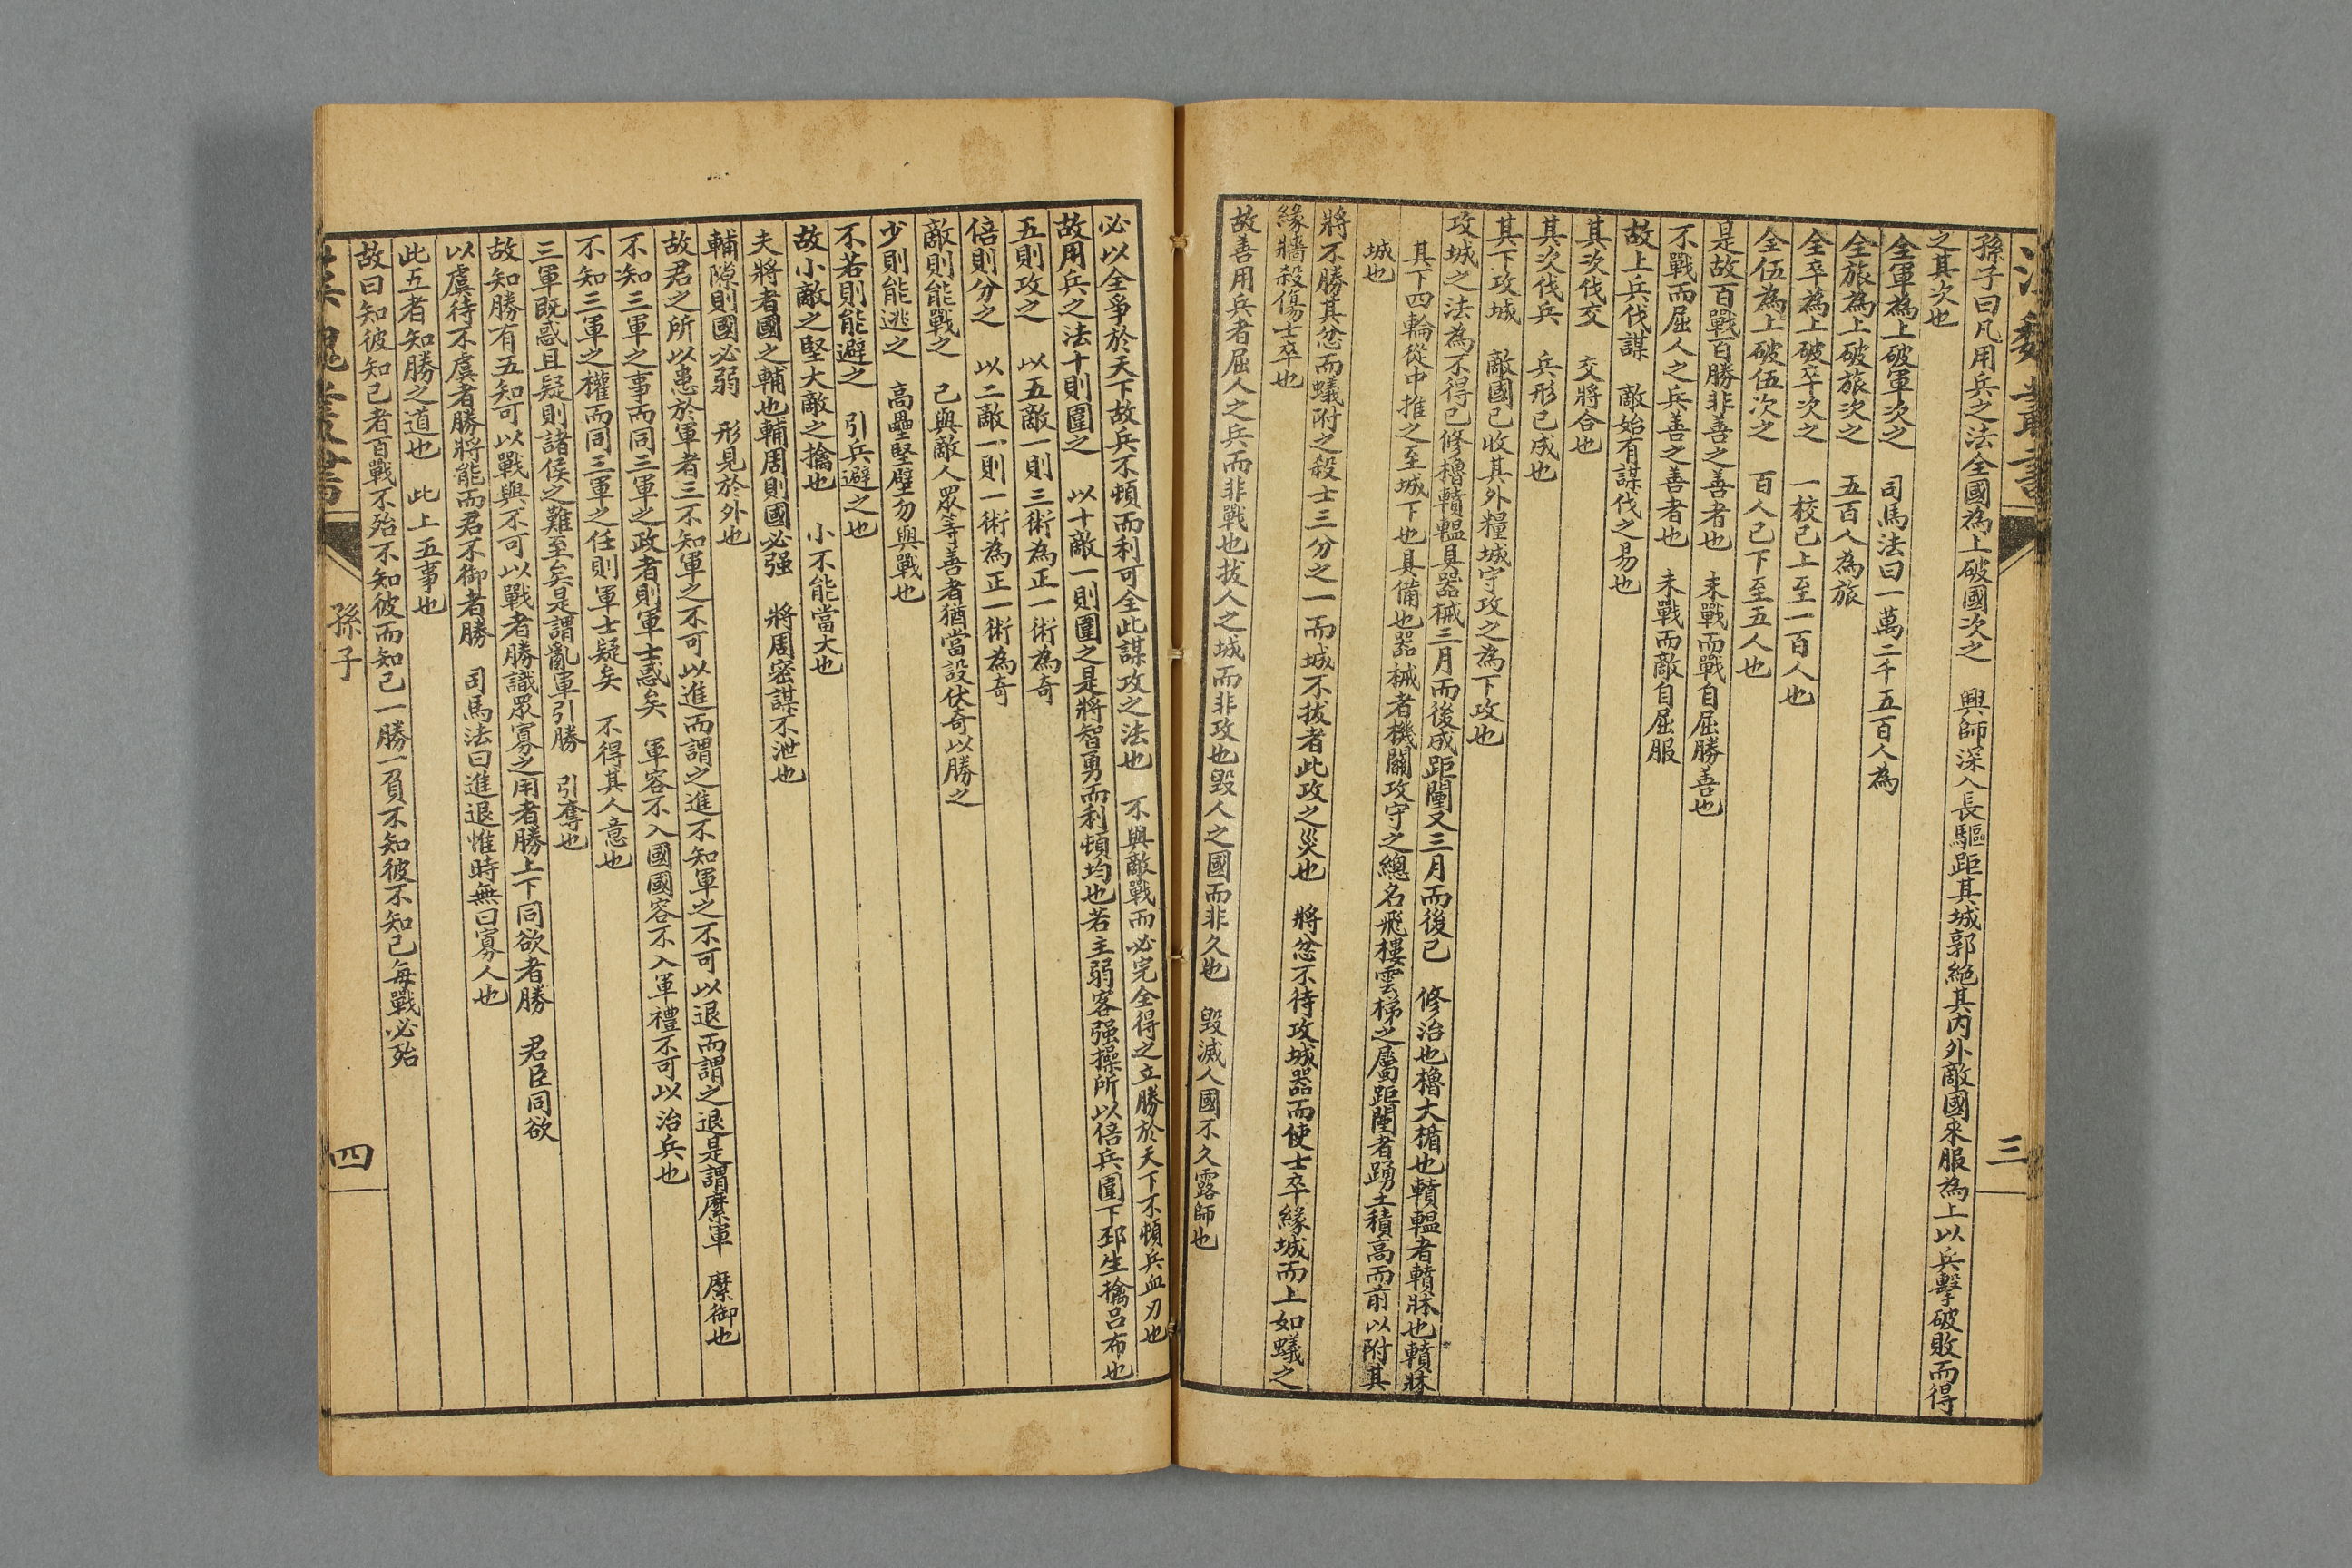 三
孫子曰凡用兵之法全國為上破國次之　興師深入長驅距其城郭絕其內外敵國來服為上以兵擊破敗而得
之其次也
全軍為上破軍次之　司馬法曰一萬二千五百人為
全旅為上破旅次之　五百人為旅
全卒為上破卒次之　一校已上至一百人也
全伍為上破伍次之　百人已下至五人也
是故百戰百勝非善之善者也　未戰而戰自屈勝善也
不戰而屈人之兵善之善者也　未戰而敵自屈服
故上兵伐謀　敵始有謀伐之易也
其次伐交　交將合也
其次伐兵　兵形已成也
其下攻城　敵國已收其外糧城守攻之為下攻也
攻城之法為不得已修櫓轒轀具器械三月而後成距闉又三月而後已　修治也櫓大楯也轒轀者轒牀也轒牀
其下四輪從中推之至城下也具備也器械者機關攻守之總名飛樓雲梯之屬距闉者踴土積高而前以附其
城也
將不勝其忿而蟻附之殺士三分之一而城不拔者此攻之災也　將忿不待攻城器而使士卒緣城而上如蟻之
緣牆殺傷士卒也
故善用兵者屈人之兵而非戰也拔人之城而非攻也毀人之國而非久也　毀滅人國不久露師也
必以全爭於天下故兵不頓而利可全此謀攻之法也　不與敵戰而必完全得之立勝於天下不頓兵血刃也
故用兵之法十則圍之　以十敵一則圍之是將智勇而利頓均也若主弱客强操所以倍兵圍下邳生擒呂布也
五則攻之　以五敵一則三術為正一術為奇
倍則分之　以二敵一則一術為正一術為奇
敵則能戰之　己與敵人眾等善者猶當設伏奇以勝之
少則能逃之　高壘堅壁勿與戰也
不若則能避之　引兵避之也
故小敵之堅大敵之擒也　小不能當大也
夫將者國之輔也輔周則國必强　將周密謀不泄也
輔隙則國必弱　形見於外也
故君之所以患於軍者三不知軍之不可以進而謂之進不知軍之不可以退而謂之退是謂縻軍　縻御也
不知三軍之事而同三軍之政者則軍士惑矣　軍容不入國國容不入軍禮不可以治兵也
不知三軍之權而同三軍之任則軍士疑矣　不得其人意也
三軍既惑且疑則諸侯之難至矣是謂亂軍引勝　引奪也
故知勝有五知可以戰與不可以戰者勝識眾寡之用者勝上下同欲者勝　君臣同欲
以虞待不虞者勝將能而君不御者勝　司馬法曰進退惟時無曰寡人也
此五者知勝之道也　此上五事也
故曰知彼知己者百戰不殆不知彼而知己一勝一負不知彼不知己每戰必殆
孫子
四